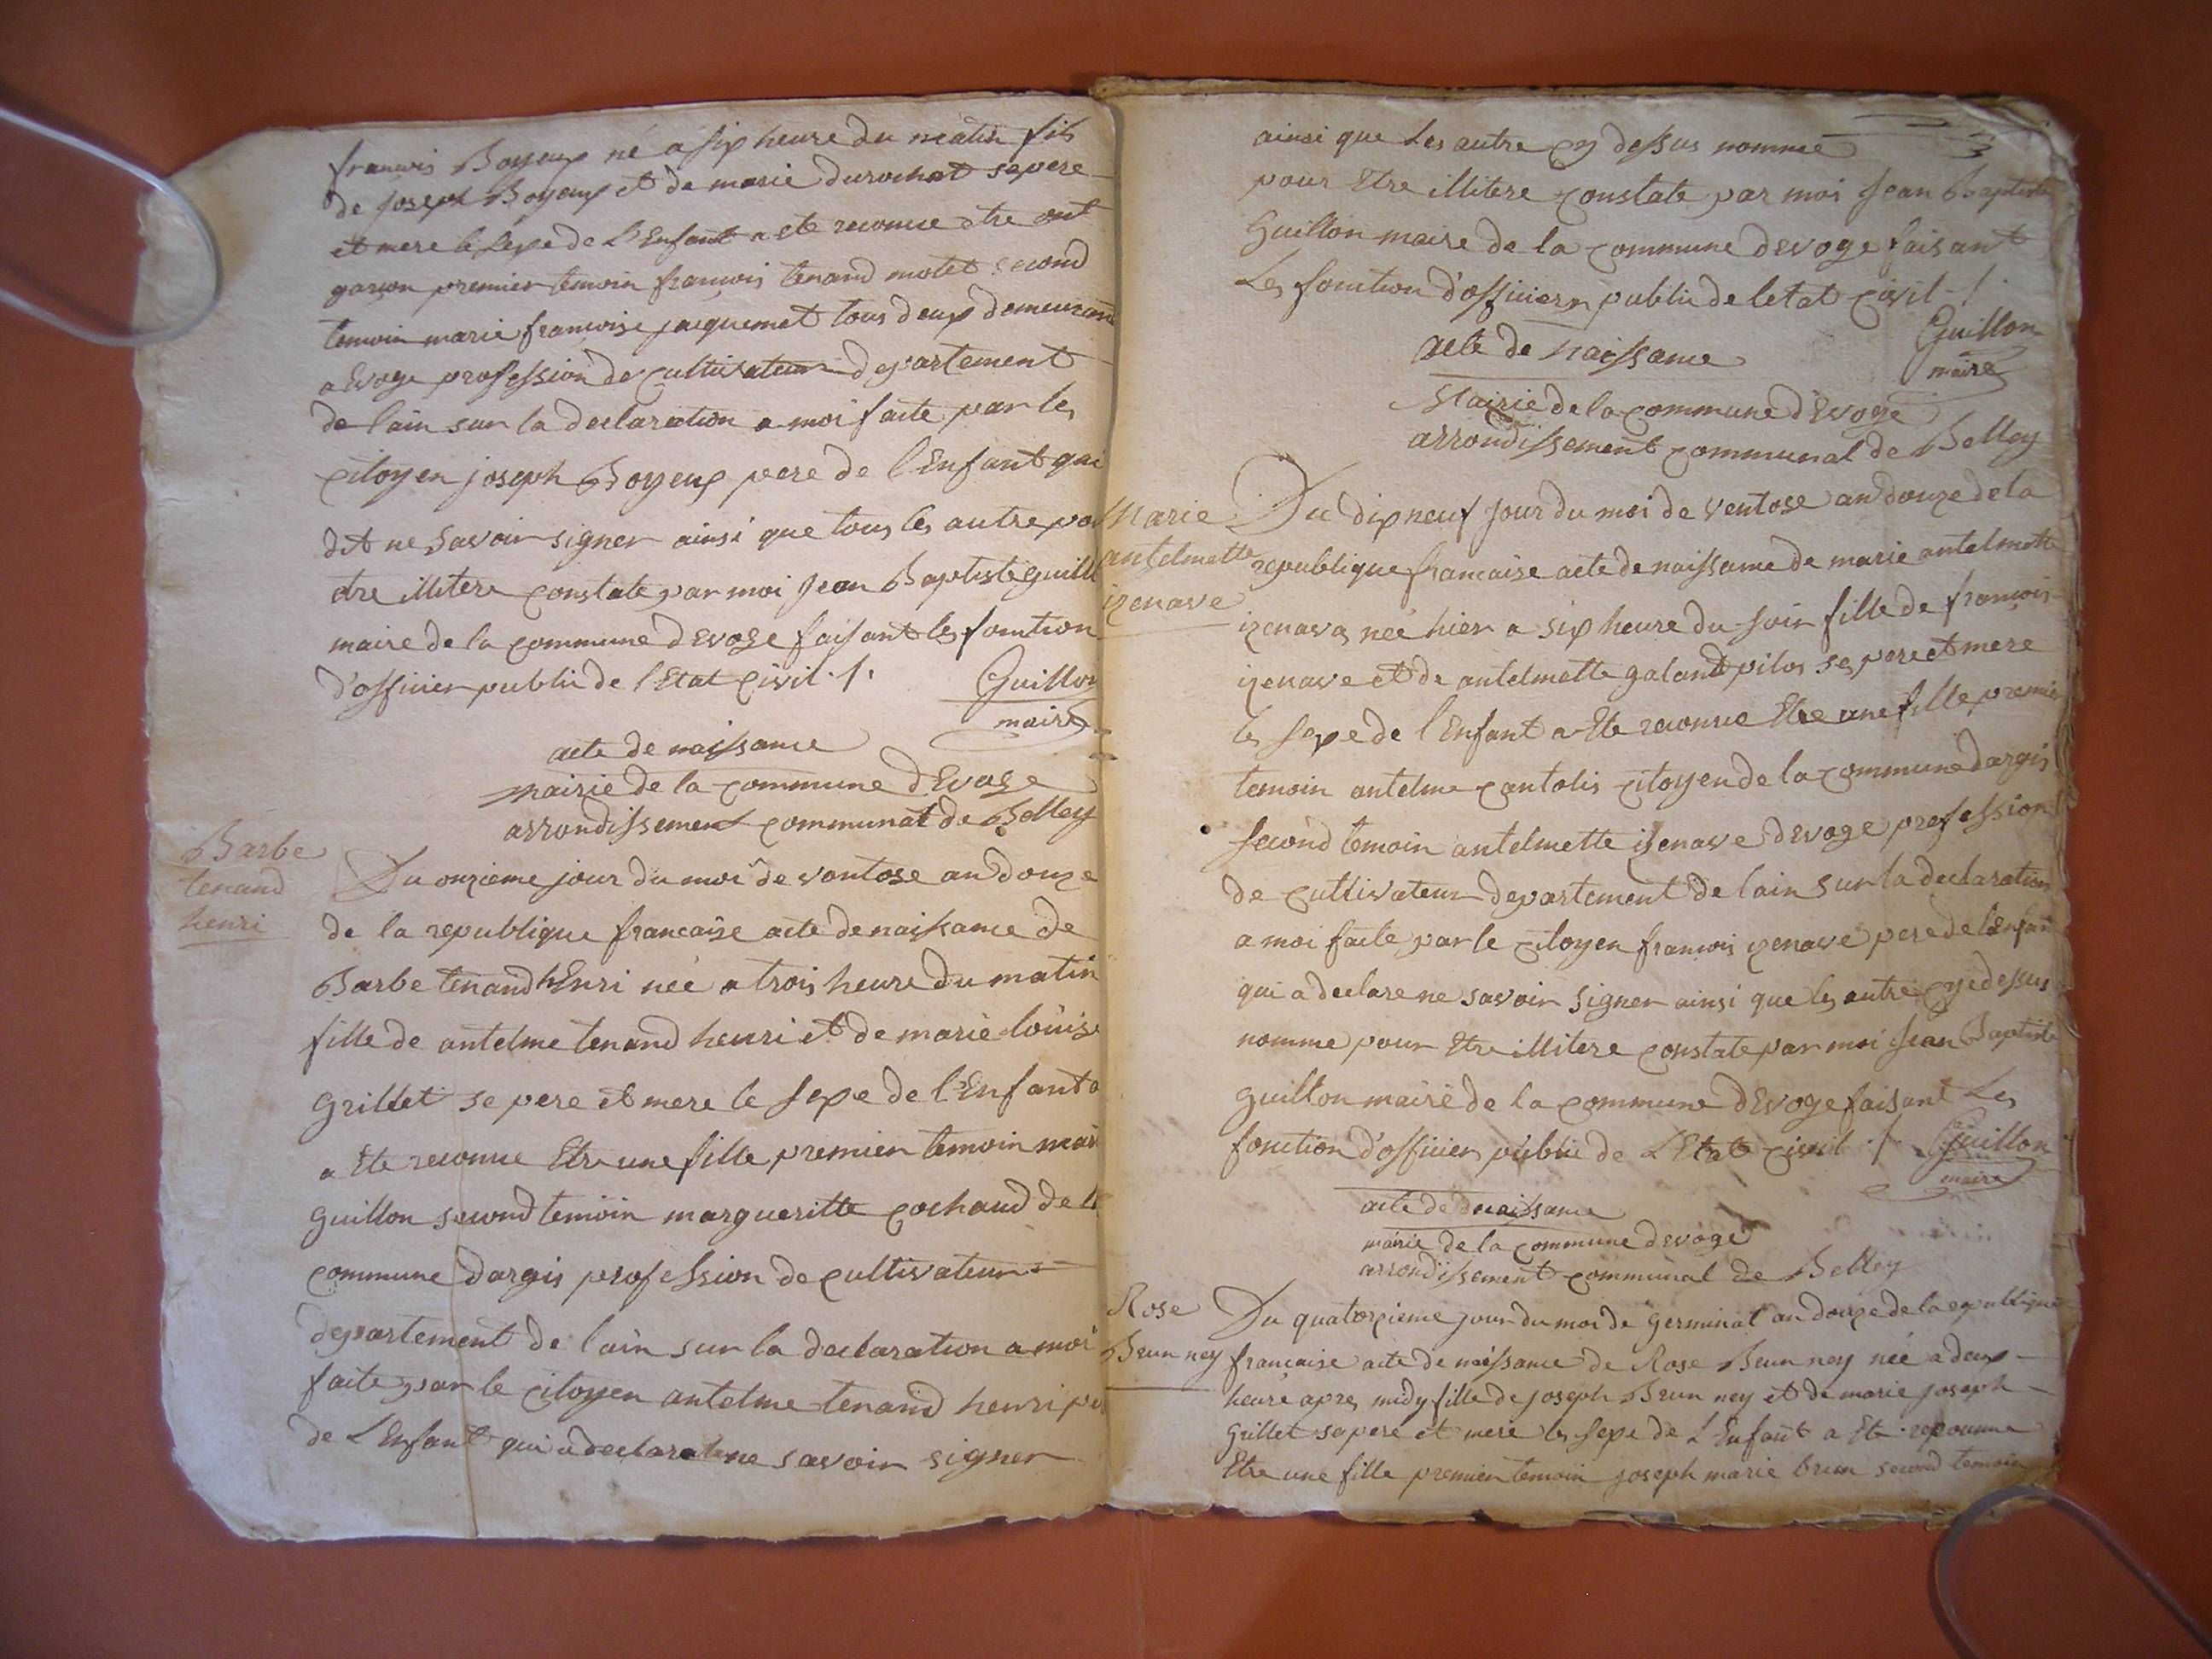 francois Boyeux né a six heure du matin fils
de joseph Boyeux et de marie durochat sepere
et mere le sexe de L'Enfant a ete reconue etre ont
garson premier temoin francois tenand motet second
temoin marie francoise jacquemet tous deux demeurant
a Evoge profession de cultivateur departement
de l'ain sur la declaration a moi faite par les
citoyen joseph Boyeux pere de l'Enfant qui
dit ne savoir signer ainsi que tous les autre pour
etre illitere constate par moi Jean Baptiste guill
maire de la commune d'Evoge faisant les fonction
d'officier public de l'Etat civil ./.
Guillon
maire
acte de naissance
mairie de la commune d'Evoge
arrondissement communal de Belley
Barbe
tenand
henri
Du onzieme jour du moi de vantose an douze
de la republique francaise acte de naissance de
Barbe tenand hEnri neé a trois heure du matin
fille de antelme tenand henri et de marie louise
Grillet se pere et mere le sexe de l'Enfant a
a Ete reconue Etre une fille premier temoin mari
guillon second temoin margueritte cochaud de la
commune dargis profession de cultivateur
departement de l'ain sur la declaration a moi
faite par le citoyen antelme tenand henri pe
de L'Enfant qui a declare ne savoir signer
ainsi que Les autre cy dessus nomme
pour Etre illitere constate par moi Jean Baptiste
Guillon maire de la commune devoge faisant
Les fonction d'officier public de letat civil ./.
Guillon
maire
acte de naissance
Mairie de la commune d'Evoge
arrondissement communal de Belley
Marie
antelmette
izenave
Du dix neuf jour du moi de ventose an douze de la
republique francaise acte de naissance de marie antelmette
izenava neé hier a six heure du soir fille de francois
izenave et de antelmette galand pilos se pere et mere
le sexe de l'Enfant a Ete reconue Etre une fille premier
temoin antelme cantolis citoyen de la commune dargis
second temoin antelmette izenave devoge profession
de cultivateur departement de l'ain sur la declaration
a moi faite par le citoyen francois izenave pere de l'enfant
qui a declare ne savoir signer ainsi que les autre cy dessus
nomme pour Etre illitere constate par moi Jean Baptiste
guillon maire de la commune d'Evoge faisant Les
fonction d'officier public de L'Etat civil ./.
Guillon
maire
acte de naissance
mairie de la commune devoge
arrondissement communal de Belley
Rose
Brun ney
Du quatorzieme jour du moi de germinal an douze de la republique
francaise acte de naissance de Rose Brun ney neé a deux
heure apres midy fille de joseph Brun ney et de marie joseph
Grillet sa pere et mere le sexe de L'Enfant a Ete reconnue
Etre une fille premier temoin joseph marie brun second temoin